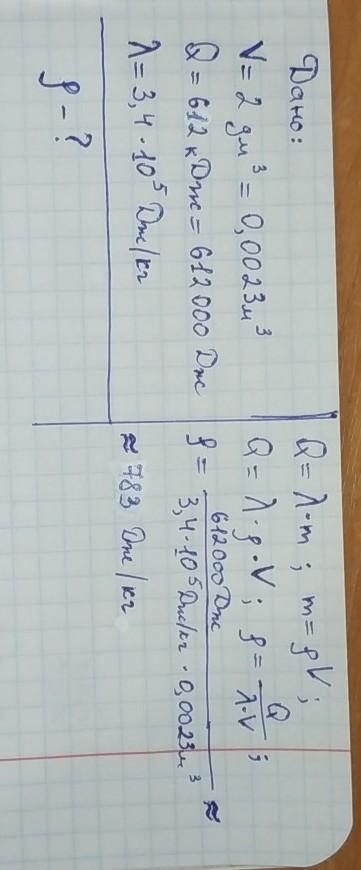 Дано:
V = 2 дм³ = 0,0023м³
Q = 612 кДж = 612000 Дж
λ = 3,4 · 10⁵ Дж/кг
ρ - ?
Q = λ·m ; m = ρV;
Q = λ·ρ·V ; ρ = Q / λ·V ;
ρ = 612000 Дж / 3,4·10⁵ Дж/кг · 0,0023м³ ≈
≈ 783 Дж/кг